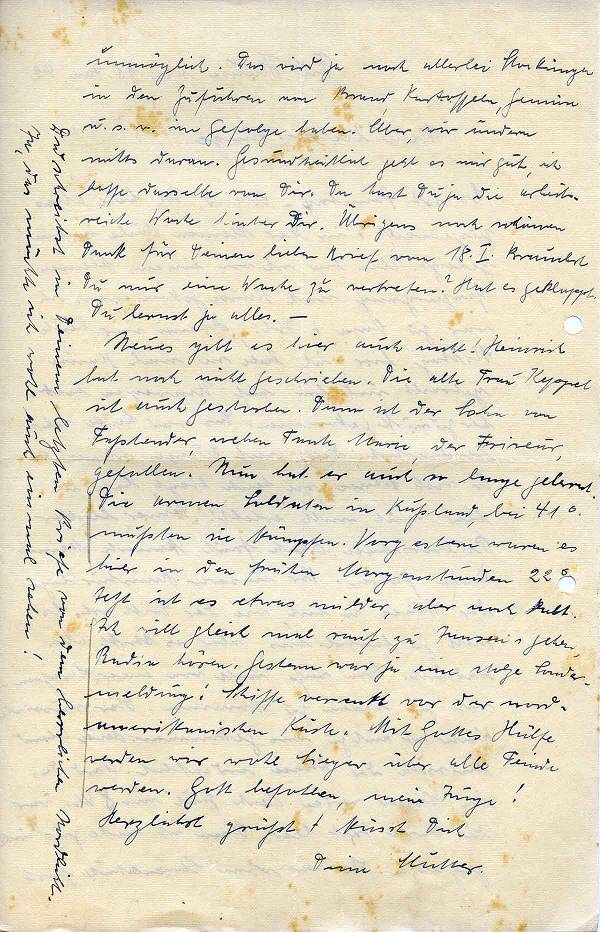 unmöglich. Das wird ja noch allerlei Stockungen
in den Zufuhren von Brand Kartoffeln, Gemüse
u.s.w. im Gefolge haben. Aber, wir ändern
nichts daran. Gesundheitlich geht es mir gut, ich
hoffe dasselbe von Dir. Du hast Du ja die arbeits-
reiche Woche hinter Dir. Übrigens noch schönen
Dank für Deinen lieben Brief vom 18.I. Brauchst
Du nur eine Woche zu vertreten? Hat es geklappt.
Du lernst ja alles. —
Neues gibt es hier auch nicht! Heinrich
hat noch nicht geschrieben. Die alte Frau Keppel
ist auch gestorben. Dann ist der Sohn von
Faßbender, neben Tante Maria, der Friseur,
gefallen. Nun hat er auch so lange gelernt.
Die armen Soldaten in Rußland, bei 41°.
mußten sie kämpfen. Vorgestern waren es
hier in den frühen Morgenstunden 22°
jetzt ist es etwas milder, aber noch kalt.
Ich will gleich mal rauf zu Jansen's gehen,
Radio hören. Gestern war ja eine stolze Sonder-
meldung! Schiffe versenkt vor der nord-
amerikanischen Küste. Mit Gottes Hülfe
werden wir wohl Sieger über alle Feinde
werden. Gott befohlen, mein Junge!
Herzlichst grüßt & küsst Dich
Deine Mutter.
Du schreibst in Deinem letzten Briefe von dem herrlichen Nordlicht.
Ja, das möchte ich wohl auch einmal sehen!